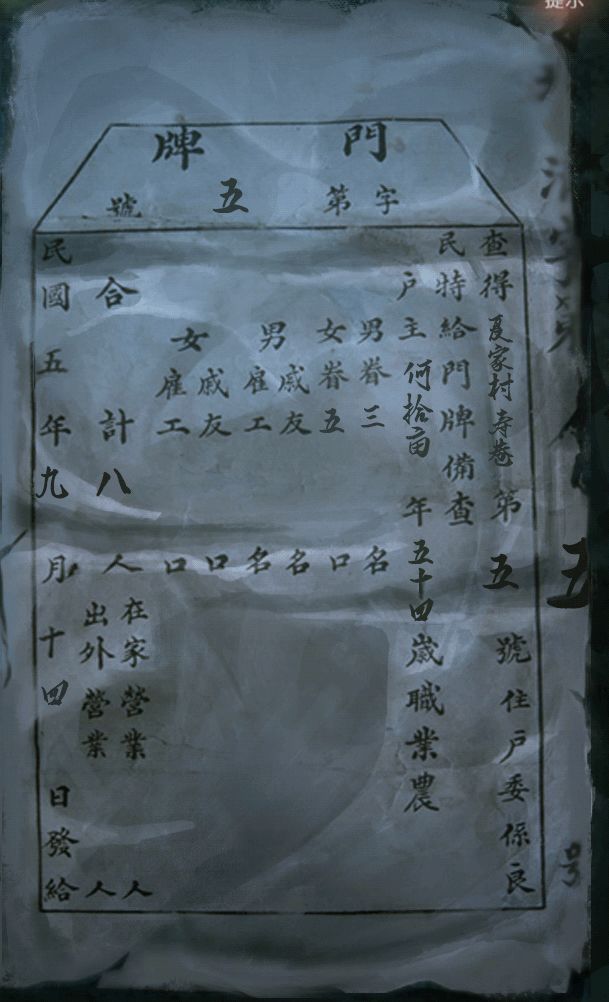 提示
門牌
字第五號
查得夏家村寺巷第五號住戶委係良
民特給門牌備查
戶主何拾亩年五十四歲職業農
男眷三名
女眷五口
男 戚友名
雇工名
女 戚友口
雇工口
合計八人 在家營業人
出外營業人
民國五年九月十四日發給
五
号